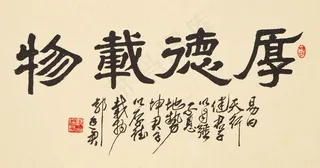 厚德載物
易曰
天行
健君子
以自强
不息
地势
坤君子
以厚德
載物